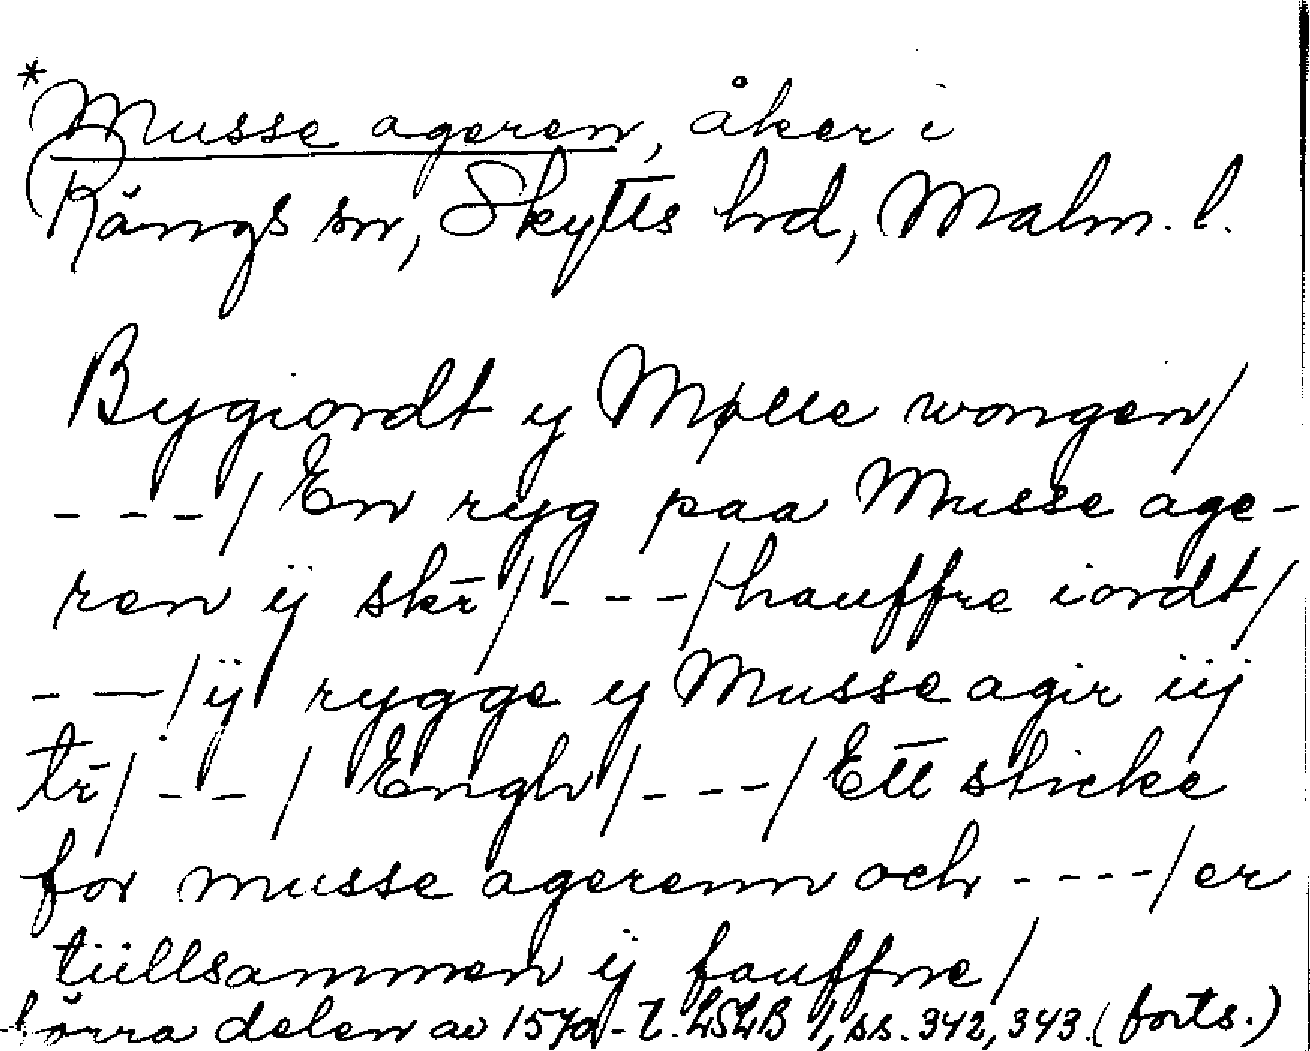 *Musse ageren, åker i
Rängs sn, Skytts hd, Malm. l.
Bygiordt y Mølle wongen/
---/ En ryg paa Musse age-
ren ij skr̄/---/hauffre iordt/
--/ij rygge y Musse agir iij
tr̄/--/ Engh/---/Ett sticke
for musse agerenn och ----/er
tiillsammen ij fauffne/
förra delen av 1570-t. LSLB 1, ss. 342, 343. (forts.)